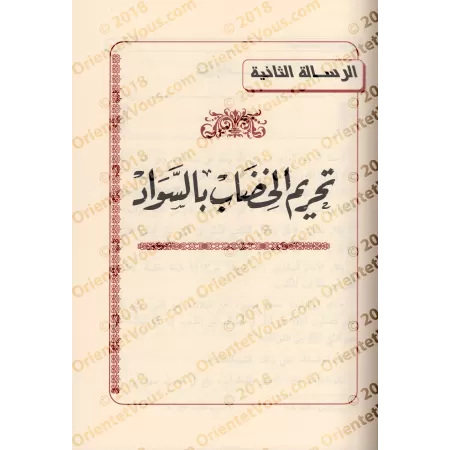 الرسالة الثانية
تحريم الخضاب بالسواد
© 2018
OrientetVous.com